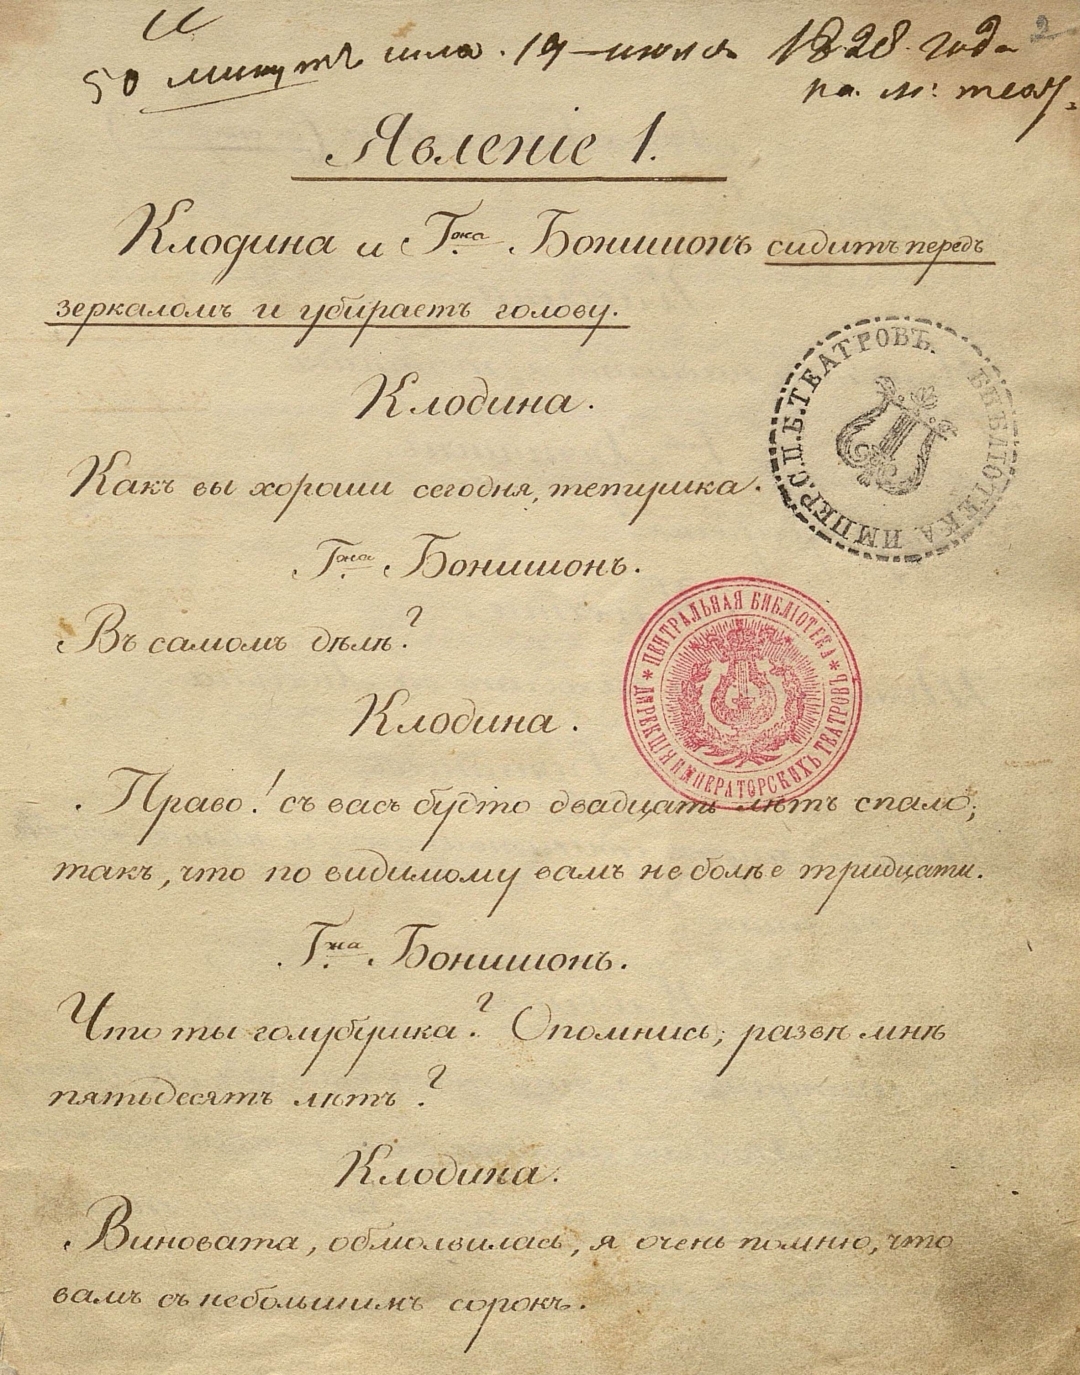 2
50 минутъ шла. 19 июля 1828 года
на. м: теат:
Явленіе 1.
Клодина и Г.жа Бонишонъ сидитъ передъ
зеркаломъ и убираетъ голову.
Клодина.
Какъ вы хороши сегодня, тетушка.
Г.жа Бонишонъ.
Въ самомъ дѣлѣ?
Клодина.
Право! съ васъ будто двадцать лѣтъ спало;
такъ, что по видимому вамъ не болѣе тридцати.
Г.жа Бонишонъ.
Что ты голубушка? Опомнись; развѣ мнѣ
пятьдесятъ лѣтъ?
Клодина.
Виновата, обмолвилась, я очень помню, что
вамъ съ небольшимъ сорокъ.
БИБЛІОТЕКА ИМПЕР. С.П.Б. ТЕАТРОВЪ.
ЦЕНТРАЛЬНАЯ БИБЛІОТЕКА
ДИРЕКЦІИ ИМПЕРАТОРСКИХЪ ТЕАТРОВЪ